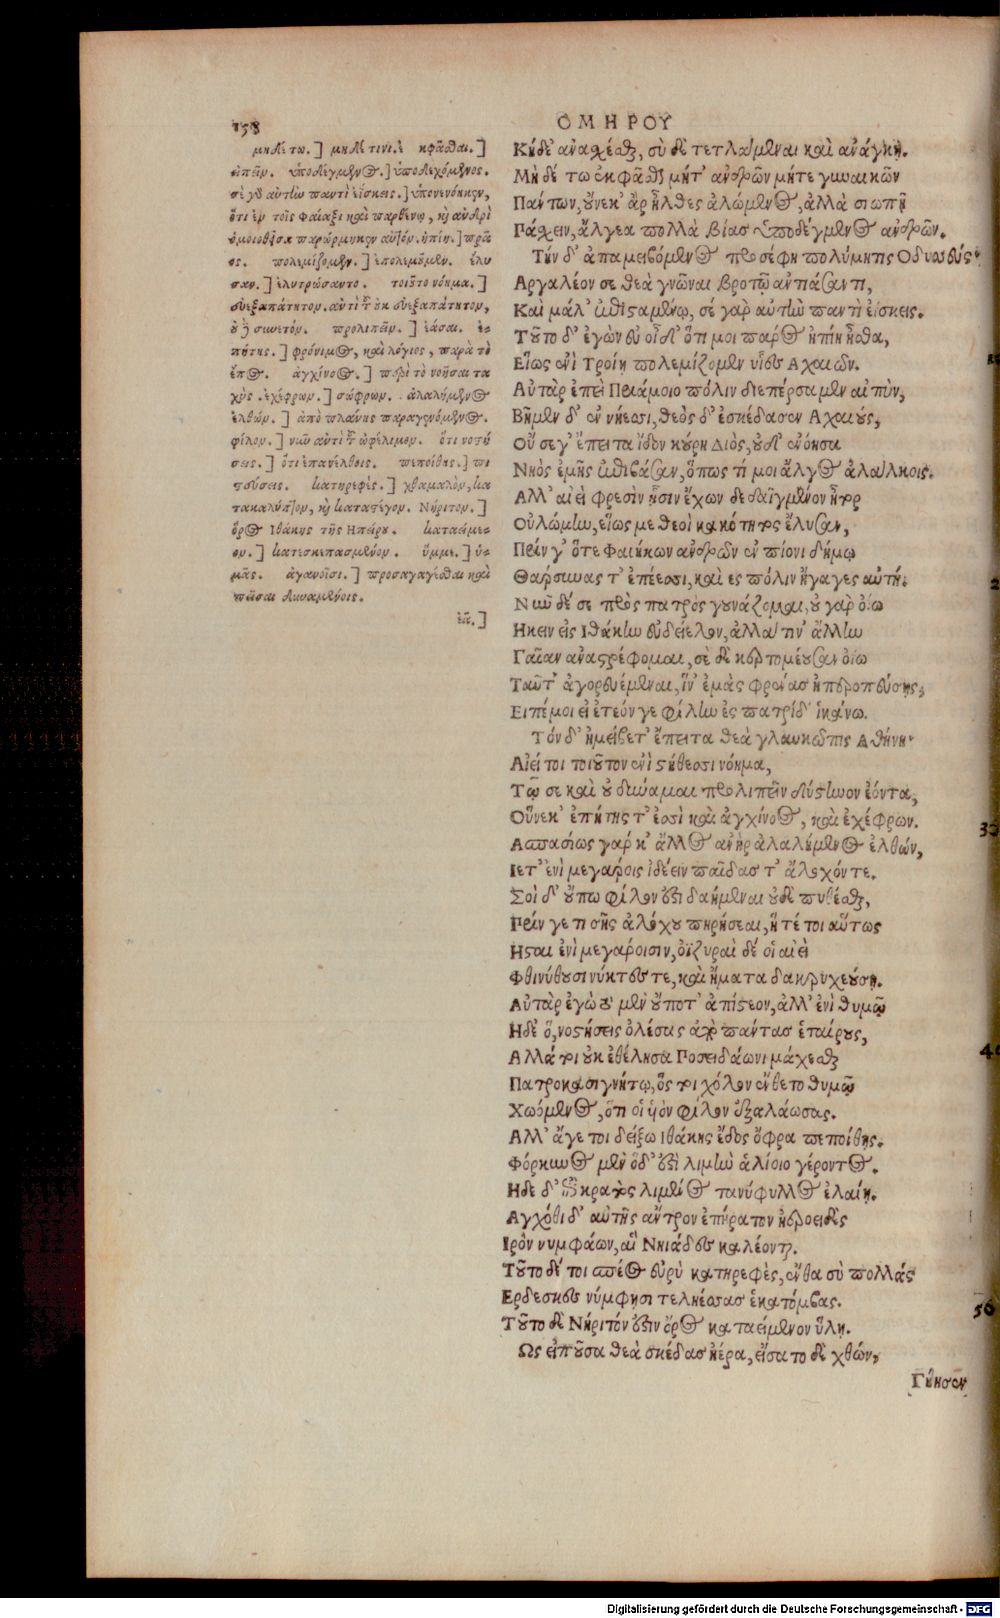 158
ΟΜΗΡΟΥ
μηδέ τω.] μηδέ τινι. ἐκφάσθαι.]
εἰπεῖν. ὑποδέγμενος.] ὑποδεχόμενος.
σὲ γὰρ αὐτὴν παντὶ ἐίσκεις.] ὑπονενόηκεν,
ὅτι ἐν τοῖς Φαίαξι καὶ παρθένῳ, καὶ ἀνδρὶ
ὁμοιωθεῖσα παρώρμηκεν αὐτόν. ἠπίη.] πρᾶ
ος. πολεμίζομεν.] ἐπολεμοῦμεν. ἔλυ
σαν.] ἐλυτρώσαντο. τοιοῦτο νόημα.]
συνετόν. προλιπεῖν.] ἐάσαι. ἐ-
πητής.] φρόνιμος, καὶ λόγιος, παρὰ τὸ
ἔπος. ἀγχίνοος.] περὶ τὸ νοῆσαι τα
χύς. ἐχέφρων.] σώφρων. ἀλαλήμενος
ἐλθών.] ἀπὸ πλάνης παραγενόμενος.
φίλον.] νῦν ἀντὶ τοῦ ὠφέλιμον. ὅτι νοστή
σεις.] ὅτι ἐπανέλθοις. πεποίθῃς.] πι
στεύσεις. κατηρεφές.] χθαμαλὸν, κα
τακαλύπτον, καὶ κατάστεγον. Νήριτον.]
ὄρος Ἰθάκης τῆς Ἠπείρου. καταείμε-
νον.] κατεσκεπασμένον. ὔμμε.] ὑ-
μᾶς. ἀγανοῖσι.] προσαγαγέσθαι καὶ
πεῖσαι δυναμένοις.
Κήδε' ἀνασχέσθαι, σὺ δὲ τετλάμεναι καὶ ἀνάγκῃ.
Μὴ δέ τω ἐκφάσθαι μήτ' ἀνδρῶν μήτε γυναικῶν
Πάντων, οὕνεκ' ἄρ' ἦλθες ἀλώμενος, ἀλλὰ σιωπῇ
Πάσχειν, ἄλγεα πολλὰ βίας ὑποδέγμενος ἀνδρῶν.
Τὴν δ' ἀπαμειβόμενος προσέφη πολύμητις Οδυσσεύς·
Αργαλέον σε θεὰ γνῶναι βροτῷ ἀντιάσαντι,
Καὶ μάλ' ἐπισταμένῳ, σὲ γὰρ αὐτὴν παντὶ ἐίσκεις.
Τοῦτο δ' ἐγὼν εὖ οἶδ' ὅτι μοι πάρος ἠπίη ἦσθα,
Εἵως ἐνὶ Τροίῃ πολεμίζομεν υἷες Αχαιῶν.
Αὐτὰρ ἐπεὶ Πριάμοιο πόλιν διεπέρσαμεν αἰπὺν,
Βῆμεν δ' ἐν νήεσσι, θεὸς δ' ἐσκέδασεν Αχαιούς,
Οὔ σε γ' ἔπειτα ἴδον κούρη Διὸς, οὐδ' ἐνόησα
Νηὸς ἐμῆς ἐπιβᾶσαν, ὅπως τί μοι ἄλγος ἀλάλκοις.
Αλλ' αἰεὶ φρεσὶν ᾗσιν ἔχων δεδαϊγμένον ἦτορ
Ηλώμην, εἵως με θεοὶ κακότητος ἔλυσαν,
Πρίν γ' ὅτε Φαιήκων ἀνδρῶν ἐν πίονι δήμῳ
Θάρσυνας τ' ἐπέεσσι, καὶ ἐς πόλιν ἤγαγες αὐτή.
Νῦν δέ σε πρὸς πατρὸς γουνάζομαι, οὐ γὰρ ὀίω
Ηκειν εἰς Ιθάκην εὐδείελον, ἀλλά τιν' ἄλλην
Γαῖαν ἀναστρέφομαι, σὲ δὲ κερτομέουσαν ὀίω
Ταῦτ' ἀγορευέμεναι, ἵν' ἐμὰς φρένας ἠπεροπεύσῃς,
Ειπέ μοι εἰ ἐτεόν γε φίλην ἐς πατρίδ' ἱκάνω.
Τὸν δ' ἠμείβετ' ἔπειτα θεὰ γλαυκῶπις Αθήνη·
Αἰεί τοι τοιοῦτον ἐνὶ στήθεσσι νόημα,
Τῷ σε καὶ οὐ δύναμαι προλιπεῖν δύστηνον ἐόντα,
Οὕνεκ' ἐπητής τ' ἐσσὶ καὶ ἀγχίνοος, καὶ ἐχέφρων.
Ασπασίως γάρ κ' ἄλλος ἀνὴρ ἀλαλήμενος ἐλθών,
Ιετ' ἐνὶ μεγάροις ἰδέειν παῖδας τ' ἄλοχόν τε.
Σοὶ δ' οὔπω φίλον ἐστὶ δαήμεναι οὐδὲ πυθέσθαι,
Πρίν γε τι σῆς ἀλόχου πειρήσεαι, ἥ τέ τοι αὔτως
Ησται ἐνὶ μεγάροισιν, ὀϊζυραὶ δέ οἱ αἰεὶ
Φθινύθουσι νύκτες τε, καὶ ἤματα δακρυχεούσῃ.
Αὐτὰρ ἐγὼ τὸ μὲν οὔποτ' ἀπίστεον, ἀλλ' ἐνὶ θυμῷ
Ηδε' ὅ, νοστήσεις ὀλέσας ἄπο πάντας ἑταίρους,
Αλλά τοι οὐκ ἐθέλησα Ποσειδάωνι μάχεσθαι
Πατροκασιγνήτῳ, ὅς τοι χόλον ἔνθετο θυμῷ
Χωόμενος, ὅτι οἱ υἱὸν φίλον ἐξαλάωσας.
Αλλ' ἄγε τοι δείξω Ιθάκης ἕδος ὄφρα πεποίθῃς.
Φόρκυνος μὲν ὅδ' ἐστὶ λιμὴν ἁλίοιο γέροντος.
Ηδε δ' ἐπὶ κρατὸς λιμένος τανύφυλλος ἐλαίη.
Αγχόθι δ' αὐτῆς ἄντρον ἐπήρατον ἠεροειδὲς
Ιρὸν νυμφάων, αἳ Νηιάδες καλέονται.
Τοῦτο δέ τοι σπέος εὐρὺ κατηρεφὲς, ἔνθα σὺ πολλάς
Ερδεσκες νύμφῃσι τεληέσσας ἑκατόμβας.
Τοῦτο δὲ Νήριτόν ἐστιν ὄρος καταειμένον ὕλῃ.
Ως εἰποῦσα θεὰ σκέδασ' ἠέρα, εἴσατο δὲ χθών,
Γήθησεν
30
40
50
Digitalisierung gefördert durch die Deutsche Forschungsgemeinschaft - DFG